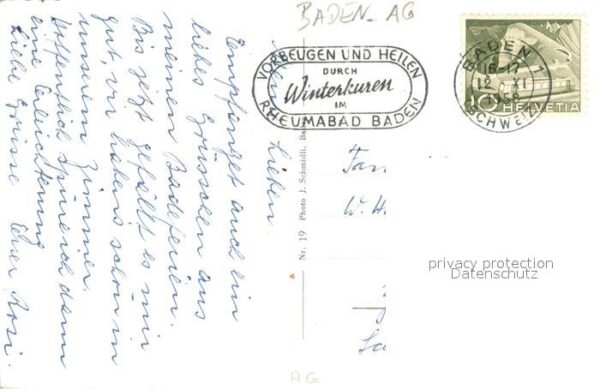 BADEN - AG
VORBEUGEN UND HEILEN
DURCH
Winterkuren
IM
RHEUMABAD BADEN
BADEN 1
16-17
12. XI
SCHWEIZ
10 HELVETIA
Lieben
Empfanget auch ein
liebes Grüsschen aus
meinen Badeferien.
Bis jetzt gefällt es mir
gut, wir haben schon im
Zimmer.
Hoffentlich spüre ich dann
eine Erleichterung
Liebe Grüsse Eure Rosi.
Nr. 19 Photo J. Schmidli, Ba
Fam
W. H
privacy protection
Datenschutz
AG